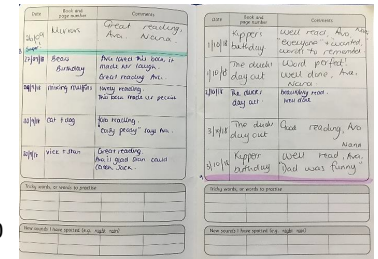 Date Book and page number Comments
Mirrors Great reading, Ava. Nana
Bears Birthday Ava loved this book it made her laugh.
Great reading Ava.
missing muffins lovely reading.
This book made us
cat + dog fab reading.
"easy peasy" says Ava.
vick + stan Great reading.
Ava is glad Stan could catch Jack.
Tricky words, or words to practise
New sounds I have spotted (e.g. night rain)
Date Book and page number Comments
1/10/18 Kippers birthday Well read, Ava. Nana
"everyone" + "wanted" words to remember
1/10/18 The duck's day out Word perfect!
Well done, Ava.
Nana
2/10/18 The duck's day out beautiful read.
Well done
3/10/18 The duck's day out Good reading, Ava
Nana
5/10/18 Kipper birthday Well read, Ava.
"Dad was funny"
Tricky words, or words to practise
New sounds I have spotted (e.g. night rain)